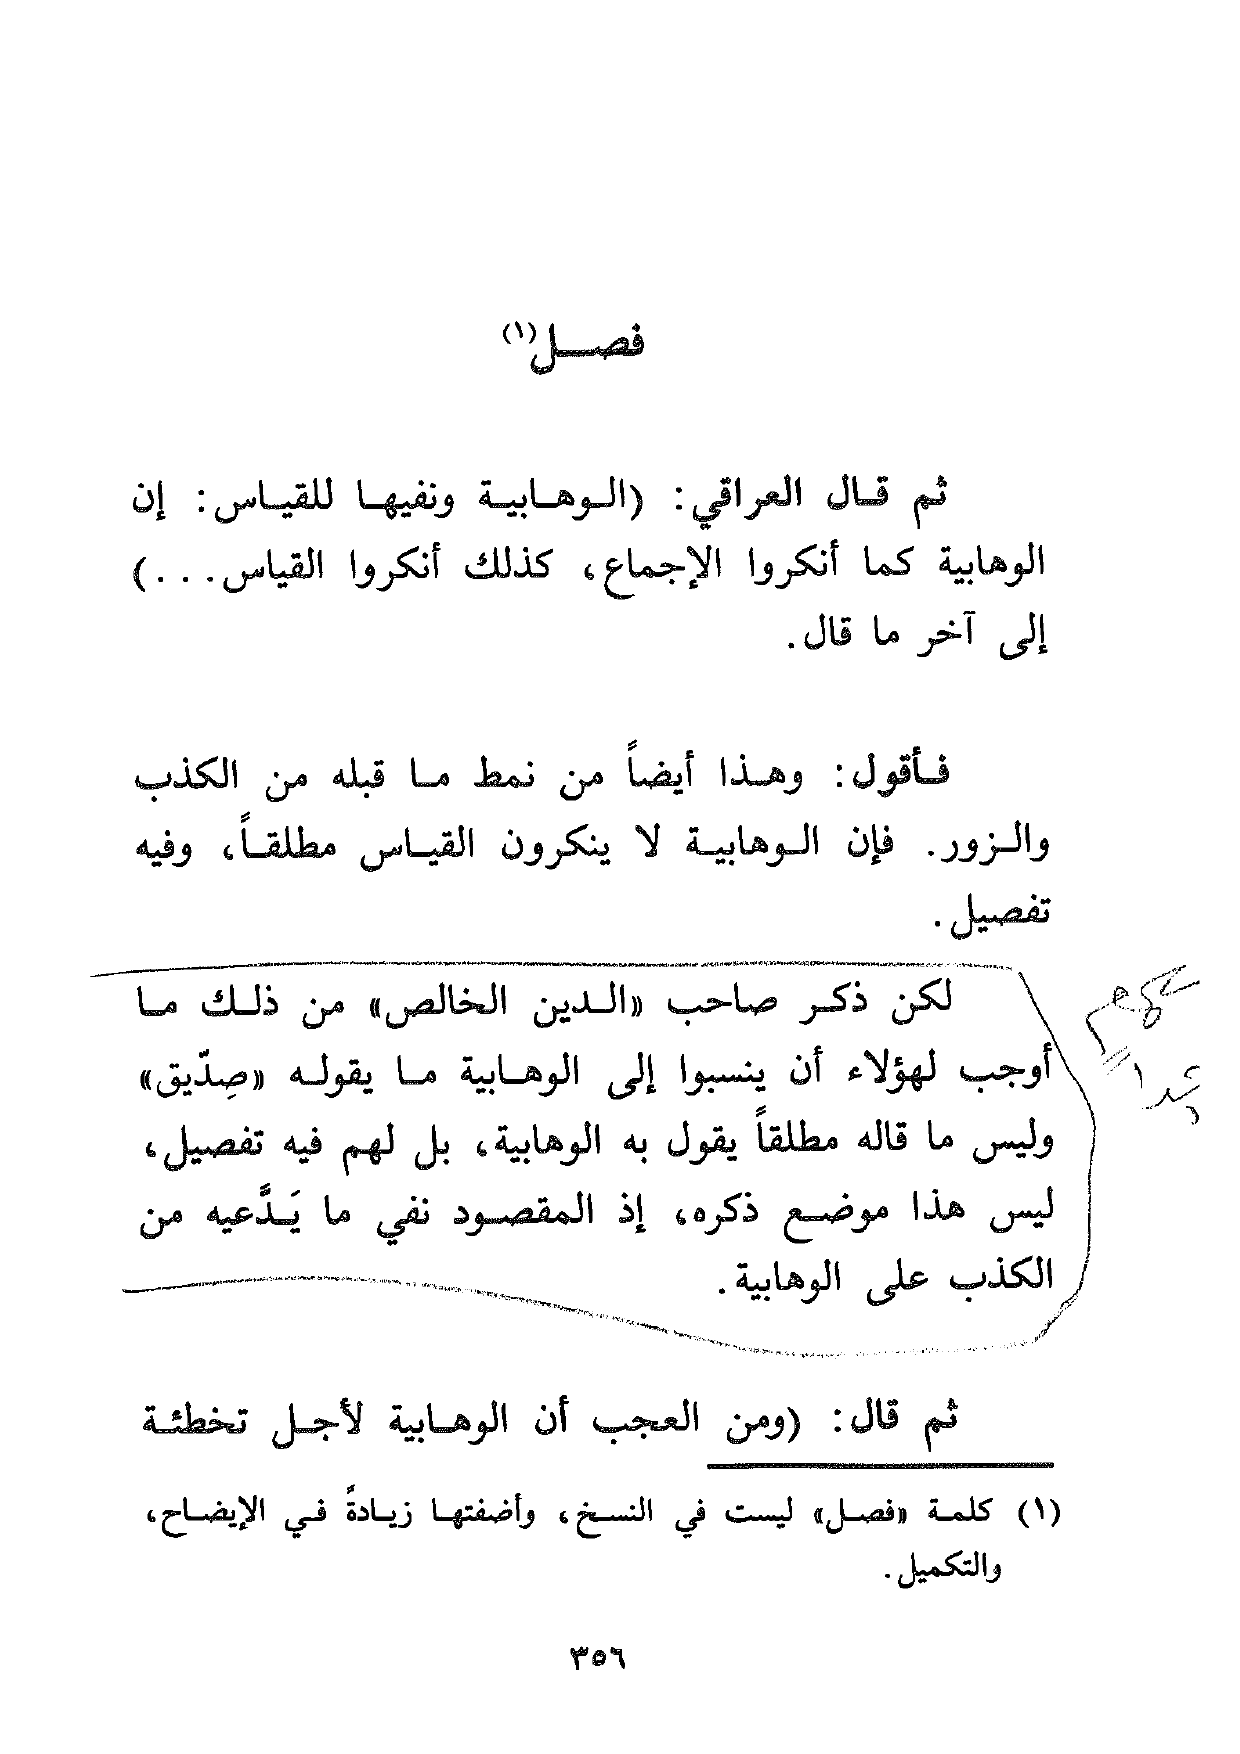 فصـــل(١)
ثم قال العراقي: (الوهابية ونفيها للقياس: إن
الوهابية كما أنكروا الإجماع، كذلك أنكروا القياس...)
إلى آخر ما قال.
فأقول: وهذا أيضاً من نمط ما قبله من الكذب
والزور. فإن الوهابية لا ينكرون القياس مطلقاً، وفيه
تفصيل.
لكن ذكر صاحب «الدين الخالص» من ذلك ما
أوجب لهؤلاء أن ينسبوا إلى الوهابية ما يقوله «صِدّيق»
وليس ما قاله مطلقاً يقول به الوهابية، بل لهم فيه تفصيل،
ليس هذا موضع ذكره، إذ المقصود نفي ما يَدَّعيه من
الكذب على الوهابية.
مهم
جداً
ثم قال: (ومن العجب أن الوهابية لأجل تخطئة
(١) كلمة «فصل» ليست في النسخ، وأضفتها زيادةً في الإيضاح،
والتكميل.
٣٥٦